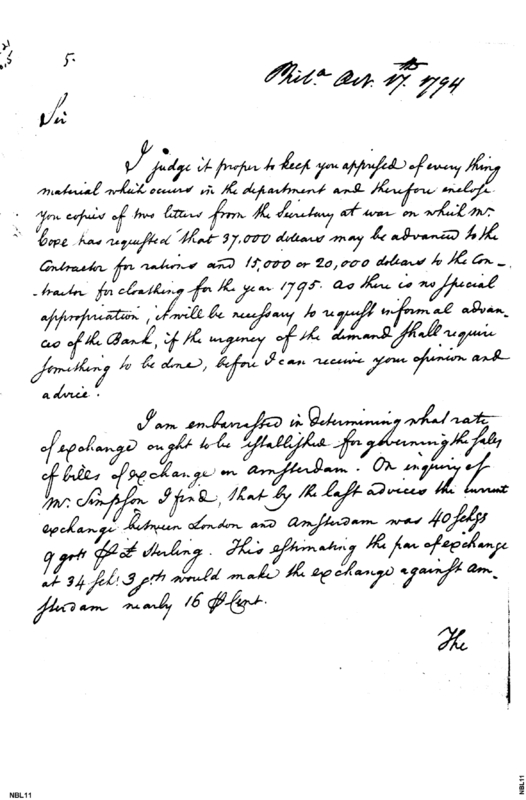 5.
Phil.a Oct. 17.th 1794
Sir
I judge it proper to keep you apprised of every thing
material which occurs in the department and therefore enclose
you copies of two letters from the Secretary at war on which Mr.
Coxe has requested that 37,000 dollars may be advanced to the
Contractor for rations and 15,000 or 20,000 dollars to the Con-
-tractor for cloathing for the year 1795. As there is no special
appropriation, it will be necessary to request informal advan-
ces of the Bank, if the urgency of the demand shall require
something to be done, before I can receive your opinion and
advice.
I am embarrassed in determining what rate
of exchange ought to be established for governing the sales
of bills of exchange on Amsterdam. On inquiry of
Mr. Simpson I find, that by the last advices the current
exchange between London and Amsterdam was 40 schgs
9 gots ⅌ £ Sterling. This estimating the par of exchange
at 34 sch: 3 gots would make the exchange against Am-
sterdam nearly 16 ⅌ Cent.
The
NBL11
NBL11